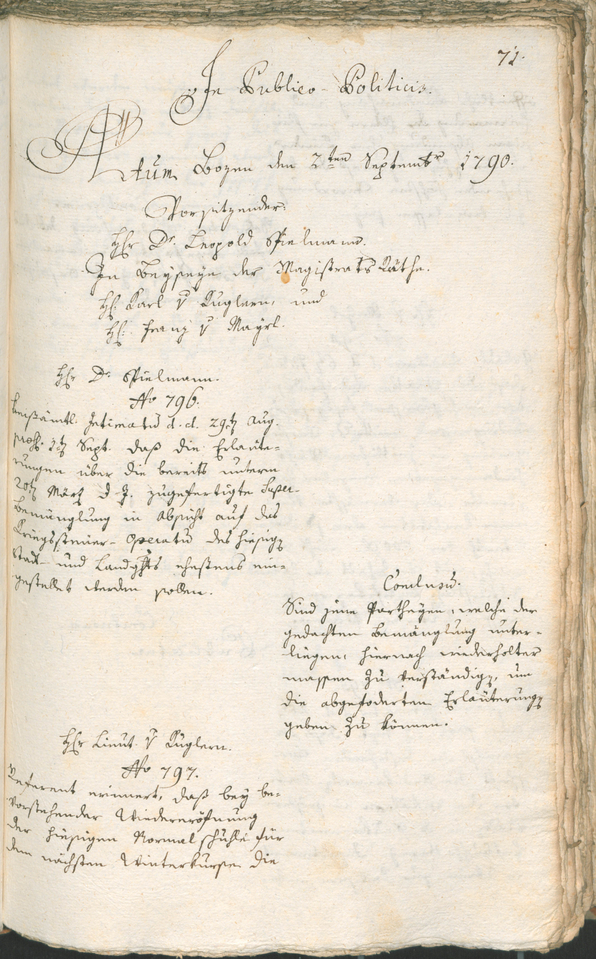 71.
In Publico-Politicis.
Actum Bozen den 2ten Septembr 1790.
Vorsitzender.
Hr Dr. Leopold Spielmann.
In Beyseye der Magistrats Räthe.
Hr Karl v Kuglern, und
Hr. Franz v Mayrl.
Hr Dr. Spielmann.
No 796.
Kreisämtl. Intimatum d. d. 29t Aug.
praes. 1t Sept. daß die Erläute-
rungen über die bereits unterm
20t März d. J. zugefertigte Super-
bemänglung in Absicht auf das
Kriegssteuer-Operatum des hiesig
Stadt- und Landghts ehestens ein-
gestellet werden sollen.
Conclusum.
Sind jene Partheyen, welche der
gedachten Bemänglung unter-
liegen, hiernach wiederholter
massen zu verständig, um
die abgeforderten Erläuterung
geben zu können.
Hr Lieut. v Kuglern.
No 797.
Referent erinnert, daß bey be-
vorstehender Wiedereröfnung
der hiesigen Normalschule für
den nächsten Winterkurse die